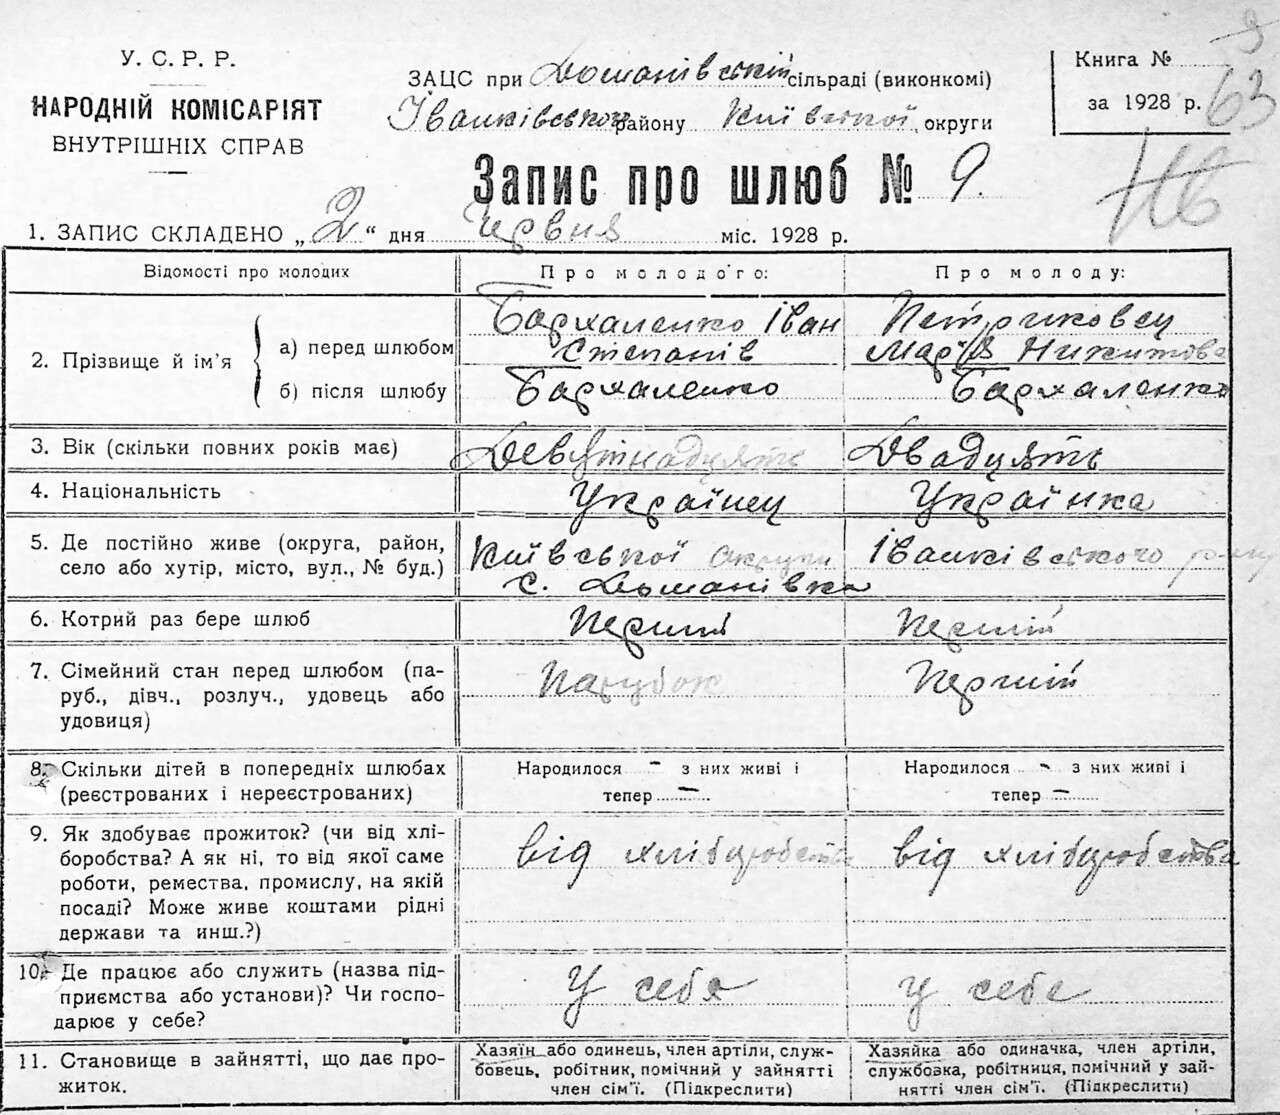 9
У. С. Р. Р.
НАРОДНІЙ КОМІСАРІЯТ
ВНУТРІШНІХ СПРАВ
ЗАЦС при Доманівській сільраді (виконкомі)
Іванківського району Київської округи
Книга №
за 1928 р. 63
Запис про шлюб № 9.
1. ЗАПИС СКЛАДЕНО „2“ дня Червня міс. 1928 р.
Відомості про молодих
Про молодого:
Про молоду:
2. Прізвище й ім'я
а) перед шлюбом
Бархаленко Іван
Степанів
Петриковец
Марія Никитова
б) після шлюбу
Бархаленко
Бархаленко
3. Вік (скільки повних років має)
Девятнадцять
Двадцять
4. Національність
Українец
Українка
5. Де постійно живе (округа, район,
село або хутір, місто, вул., № буд.)
Київської округи
с. Домановка
Іванківського
6. Котрий раз бере шлюб
Перший
Перший
7. Сімейний стан перед шлюбом (па-
руб., дівч., розлуч., удовець або
удовиця)
Парубок
Перший
8. Скільки дітей в попередніх шлюбах
(реєстрованих і нереєстрованих)
Народилося - з них живі і
тепер -
Народилося - з них живі і
тепер -
9. Як здобуває прожиток? (чи від хлі-
боробства? А як ні, то від якої саме
роботи, ремества, промислу, на якій
посаді? Може живе коштами рідні
держави та инш.?)
від
від
10. Де працює або служить (назва під-
приємства або установи)? Чи госпо-
дарює у себе?
У себя
У себе
11. Становище в зайнятті, що дає про-
житок.
Хазяїн або одинець, член артіли, служ-
бовець, робітник, помічний у зайнятті
член сім'ї. (Підкреслити)
Хазяйка або одиначка, член артіли,
службовка, робітниця, помічний у зай-
нятті член сім'ї. (Підкреслити)